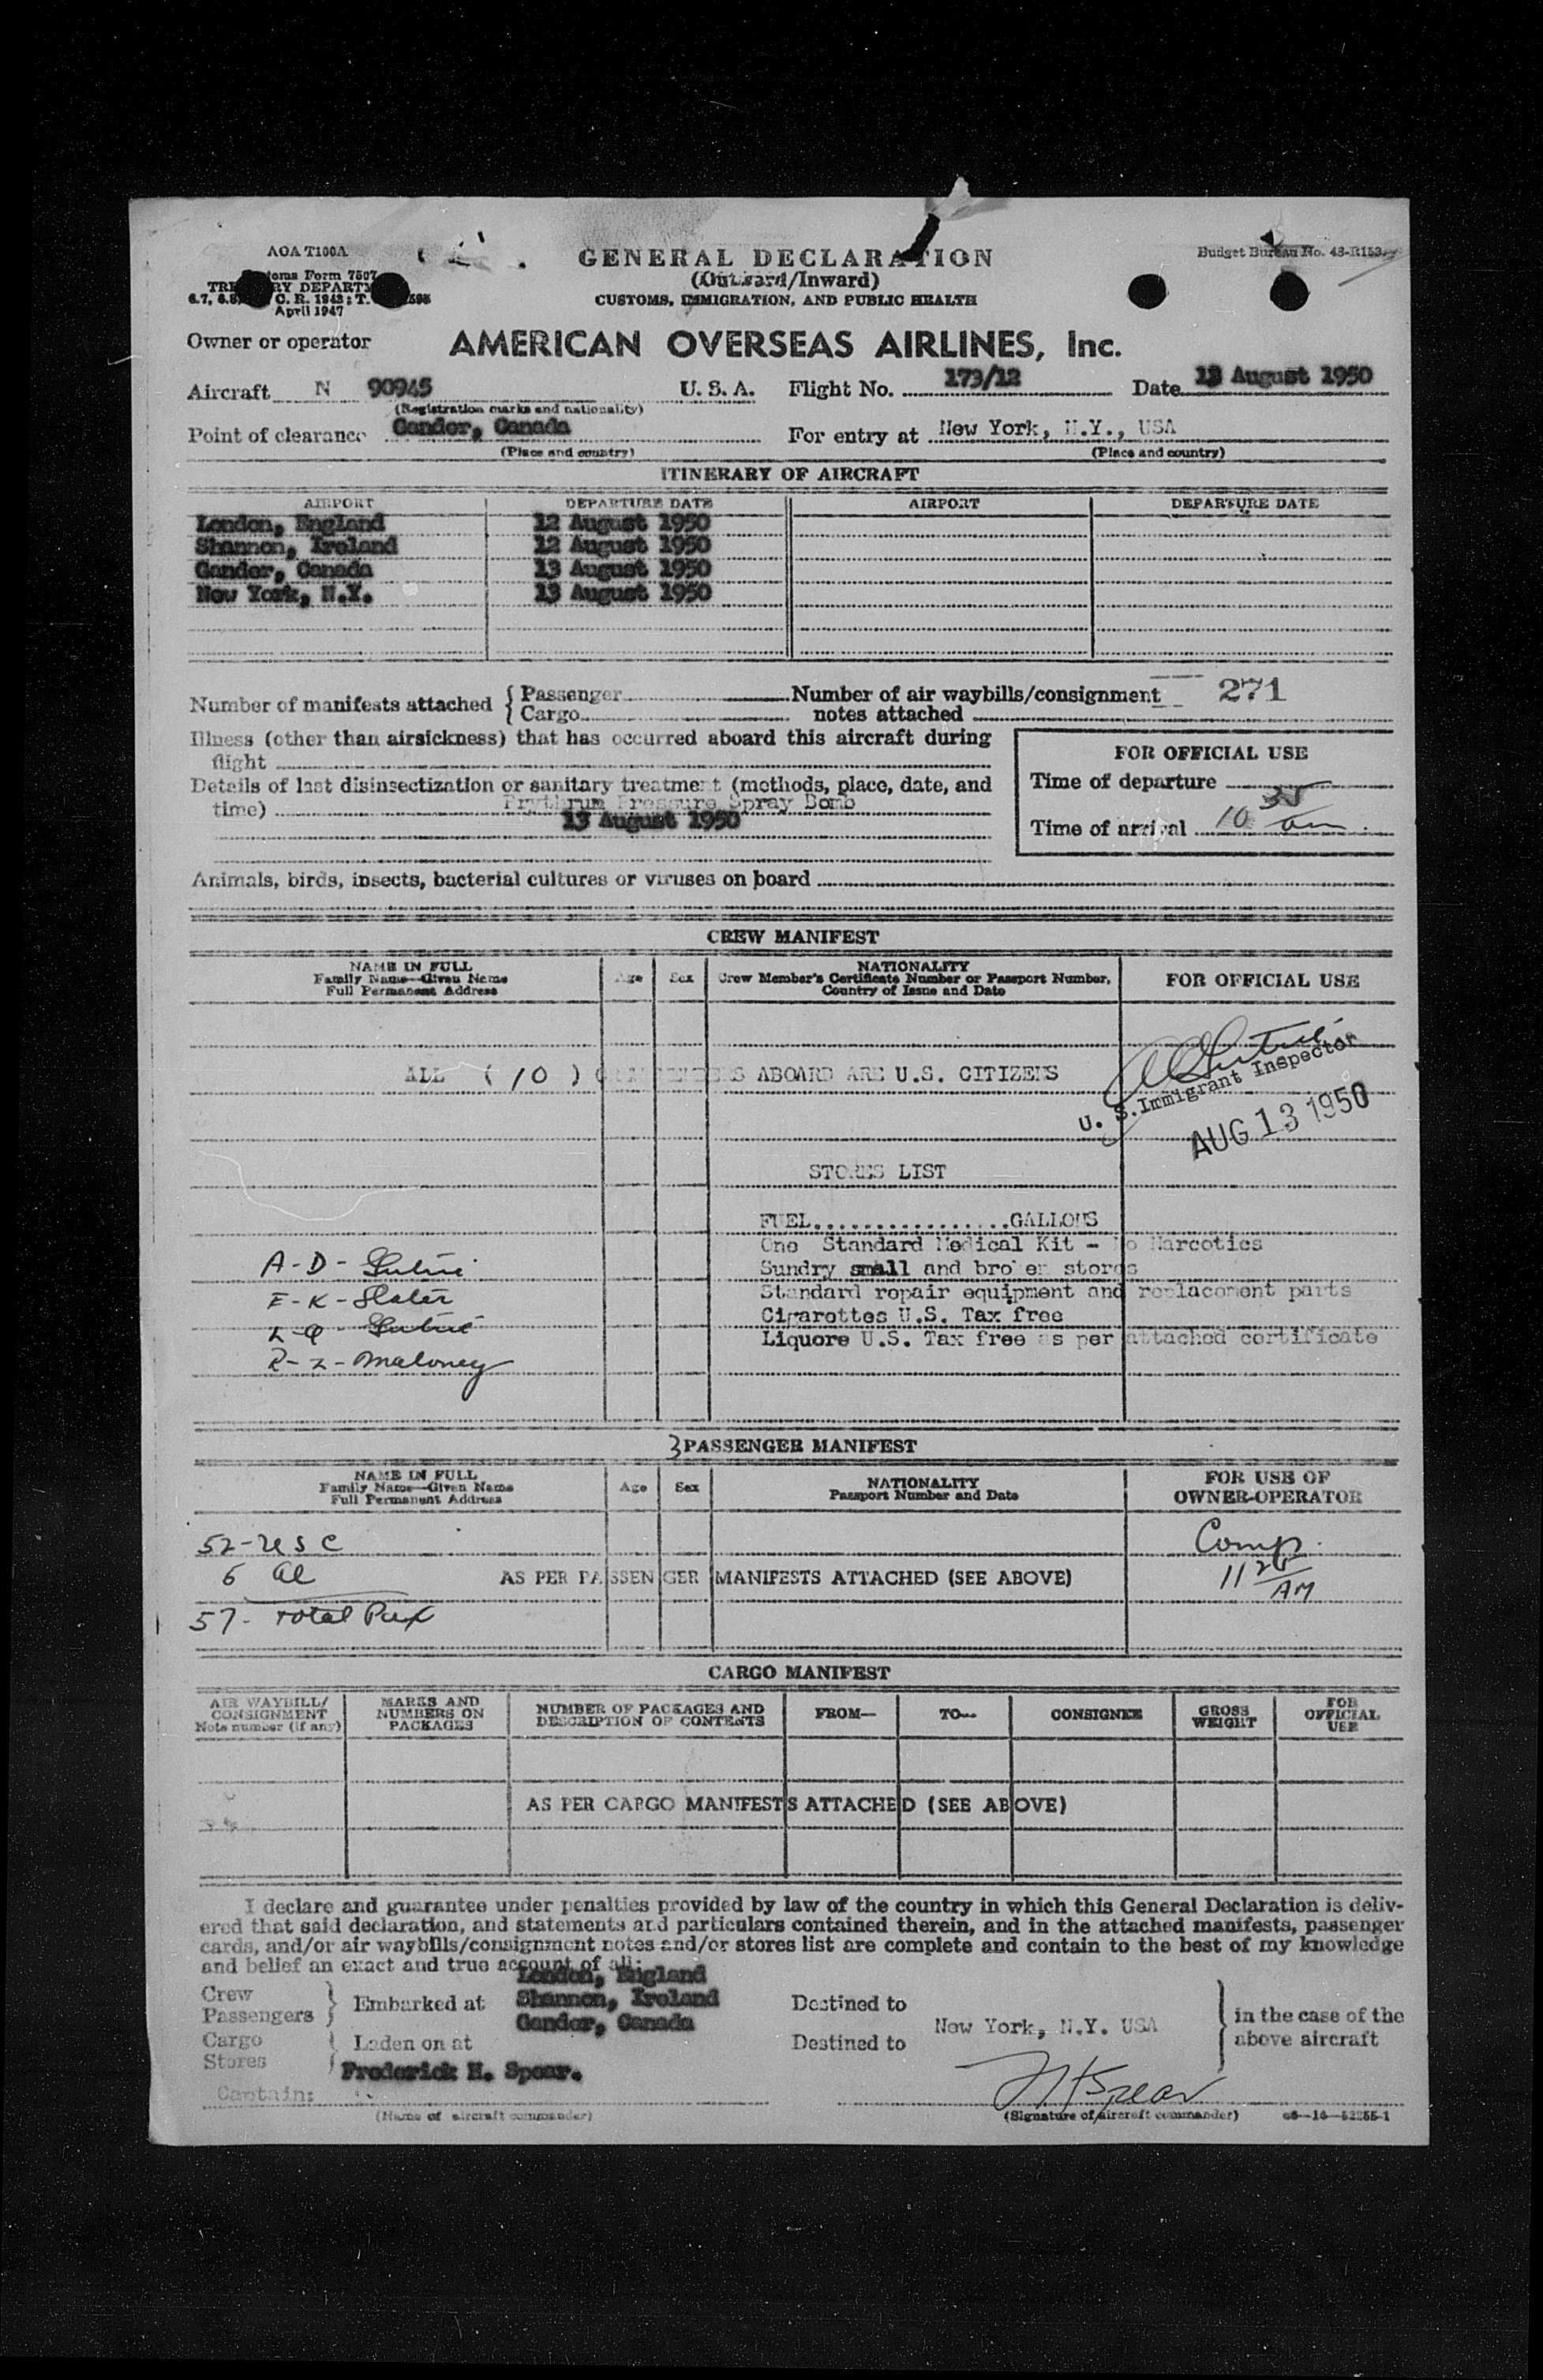 AOA T100A
GENERAL DECLARATION
Budget Bureau No. 48-R153
(Outward/Inward)
Customs Form 7507
TREASURY DEPARTMENT
CUSTOMS, IMMIGRATION, AND PUBLIC HEALTH
April 1947
Owner or operator AMERICAN OVERSEAS AIRLINES, Inc.
Aircraft N 90945 U. S. A. Flight No. 173/12 Date 13 August 1950
(Registration marks and nationality)
Point of clearance Gander, Canada For entry at New York, N.Y., USA
(Place and country) (Place and country)
ITINERARY OF AIRCRAFT
AIRPORT DEPARTURE DATE AIRPORT DEPARTURE DATE
London, England 12 August 1950
Shannon, Ireland 12 August 1950
Gander, Canada 13 August 1950
New York, N.Y. 13 August 1950
Number of manifests attached { Passenger Number of air waybills/consignment 271
Cargo notes attached
Illness (other than airsickness) that has occurred aboard this aircraft during
flight
FOR OFFICIAL USE
Details of last disinsectization or sanitary treatment (methods, place, date, and
time) Prythrum Pressure Spray Bomb
13 August 1950
Time of departure
Time of arrival 10 35 am
Animals, birds, insects, bacterial cultures or viruses on board
CREW MANIFEST
NAME IN FULL
Family Name—Given Name
Full Permanent Address
Age Sex
NATIONALITY
Crew Member's Certificate Number or Passport Number,
Country of Issue and Date
FOR OFFICIAL USE
ALL (10) CREW MEMBERS ABOARD ARE U.S. CITIZENS
U. S. Immigrant Inspector
AUG 13 1950
STORES LIST
FUEL................GALLONS
One Standard Medical Kit - No Narcotics
A-D-
Sundry small and broken stores
E-K-Slater
Standard repair equipment and replacement parts
Cigarettes U.S. Tax free
Liquore U.S. Tax free as per attached certificate
R-Z-Maloney
3 PASSENGER MANIFEST
NAME IN FULL
Family Name—Given Name
Full Permanent Address
Age Sex
NATIONALITY
Passport Number and Date
FOR USE OF
OWNER-OPERATOR
52-USC
Comp.
6 al AS PER PASSENGER MANIFESTS ATTACHED (SEE ABOVE)
11 25 AM
57- Total Pax
CARGO MANIFEST
AIR WAYBILL/
CONSIGNMENT
Note number (if any)
MARKS AND
NUMBERS ON
PACKAGES
NUMBER OF PACKAGES AND
DESCRIPTION OF CONTENTS
FROM— TO— CONSIGNEE
GROSS
WEIGHT
FOR
OFFICIAL
USE
AS PER CARGO MANIFESTS ATTACHED (SEE ABOVE)
I declare and guarantee under penalties provided by law of the country in which this General Declaration is deliv-
ered that said declaration, and statements and particulars contained therein, and in the attached manifests, passenger
cards, and/or air waybills/consignment notes and/or stores list are complete and contain to the best of my knowledge
and belief an exact and true account of all:
London, England
Crew
Passengers } Embarked at Shannon, Ireland Destined to
Gander, Canada
New York, N.Y. USA
in the case of the
above aircraft
Cargo
Stores } Laden on at Destined to
Frederick H. Spear.
Captain:
F H Spear
(Name of aircraft commander) (Signature of aircraft commander) c6—16—52255-1